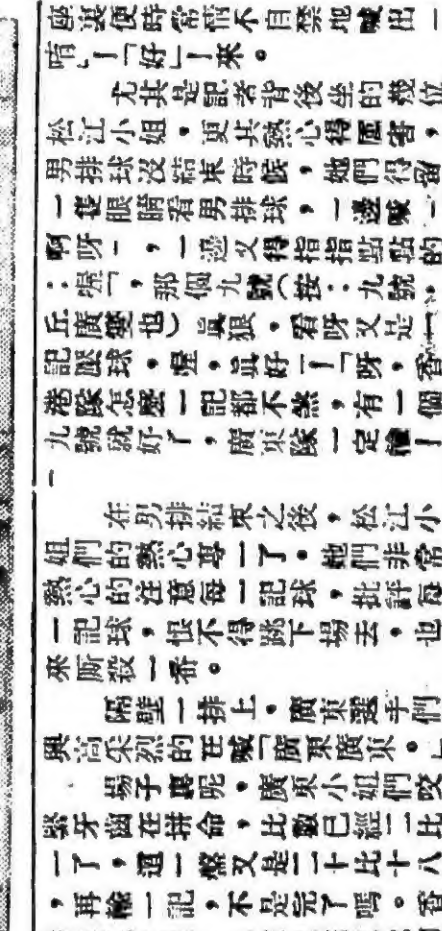 座裏便時常情不自禁地喊出一
唷」！「好」！來。
尤其是記者背後坐的幾位
松江小姐，更其熱心得厲害，
男排球沒結束時候，她們得留
一隻眼睛看男排球，一邊喊「
啊呀」，一邊又得指指點點的
：喔「，那個九號（按：九號，
丘廣燮也）眞狠，看呀又是一
記壓球，喔，眞好！」「呀，香
港隊怎麼一記都不煞，有一個
九號就好了，廣東隊一定輸！
」
在男排結束之後，松江小
姐們的熱心專一了。她們非常
熱心的注意每一記球，批評每
一記球，恨不得跳下場去，也
來厮殺一番。
隔壁一排上，廣東選手們
興高采烈的在喊「廣東廣東。」
場子裏呢，廣東小姐們咬
緊牙齒在拼命，比數已經二比
一了，這一盤又是二十比十八
，再輸一記，不是完了嗎。香